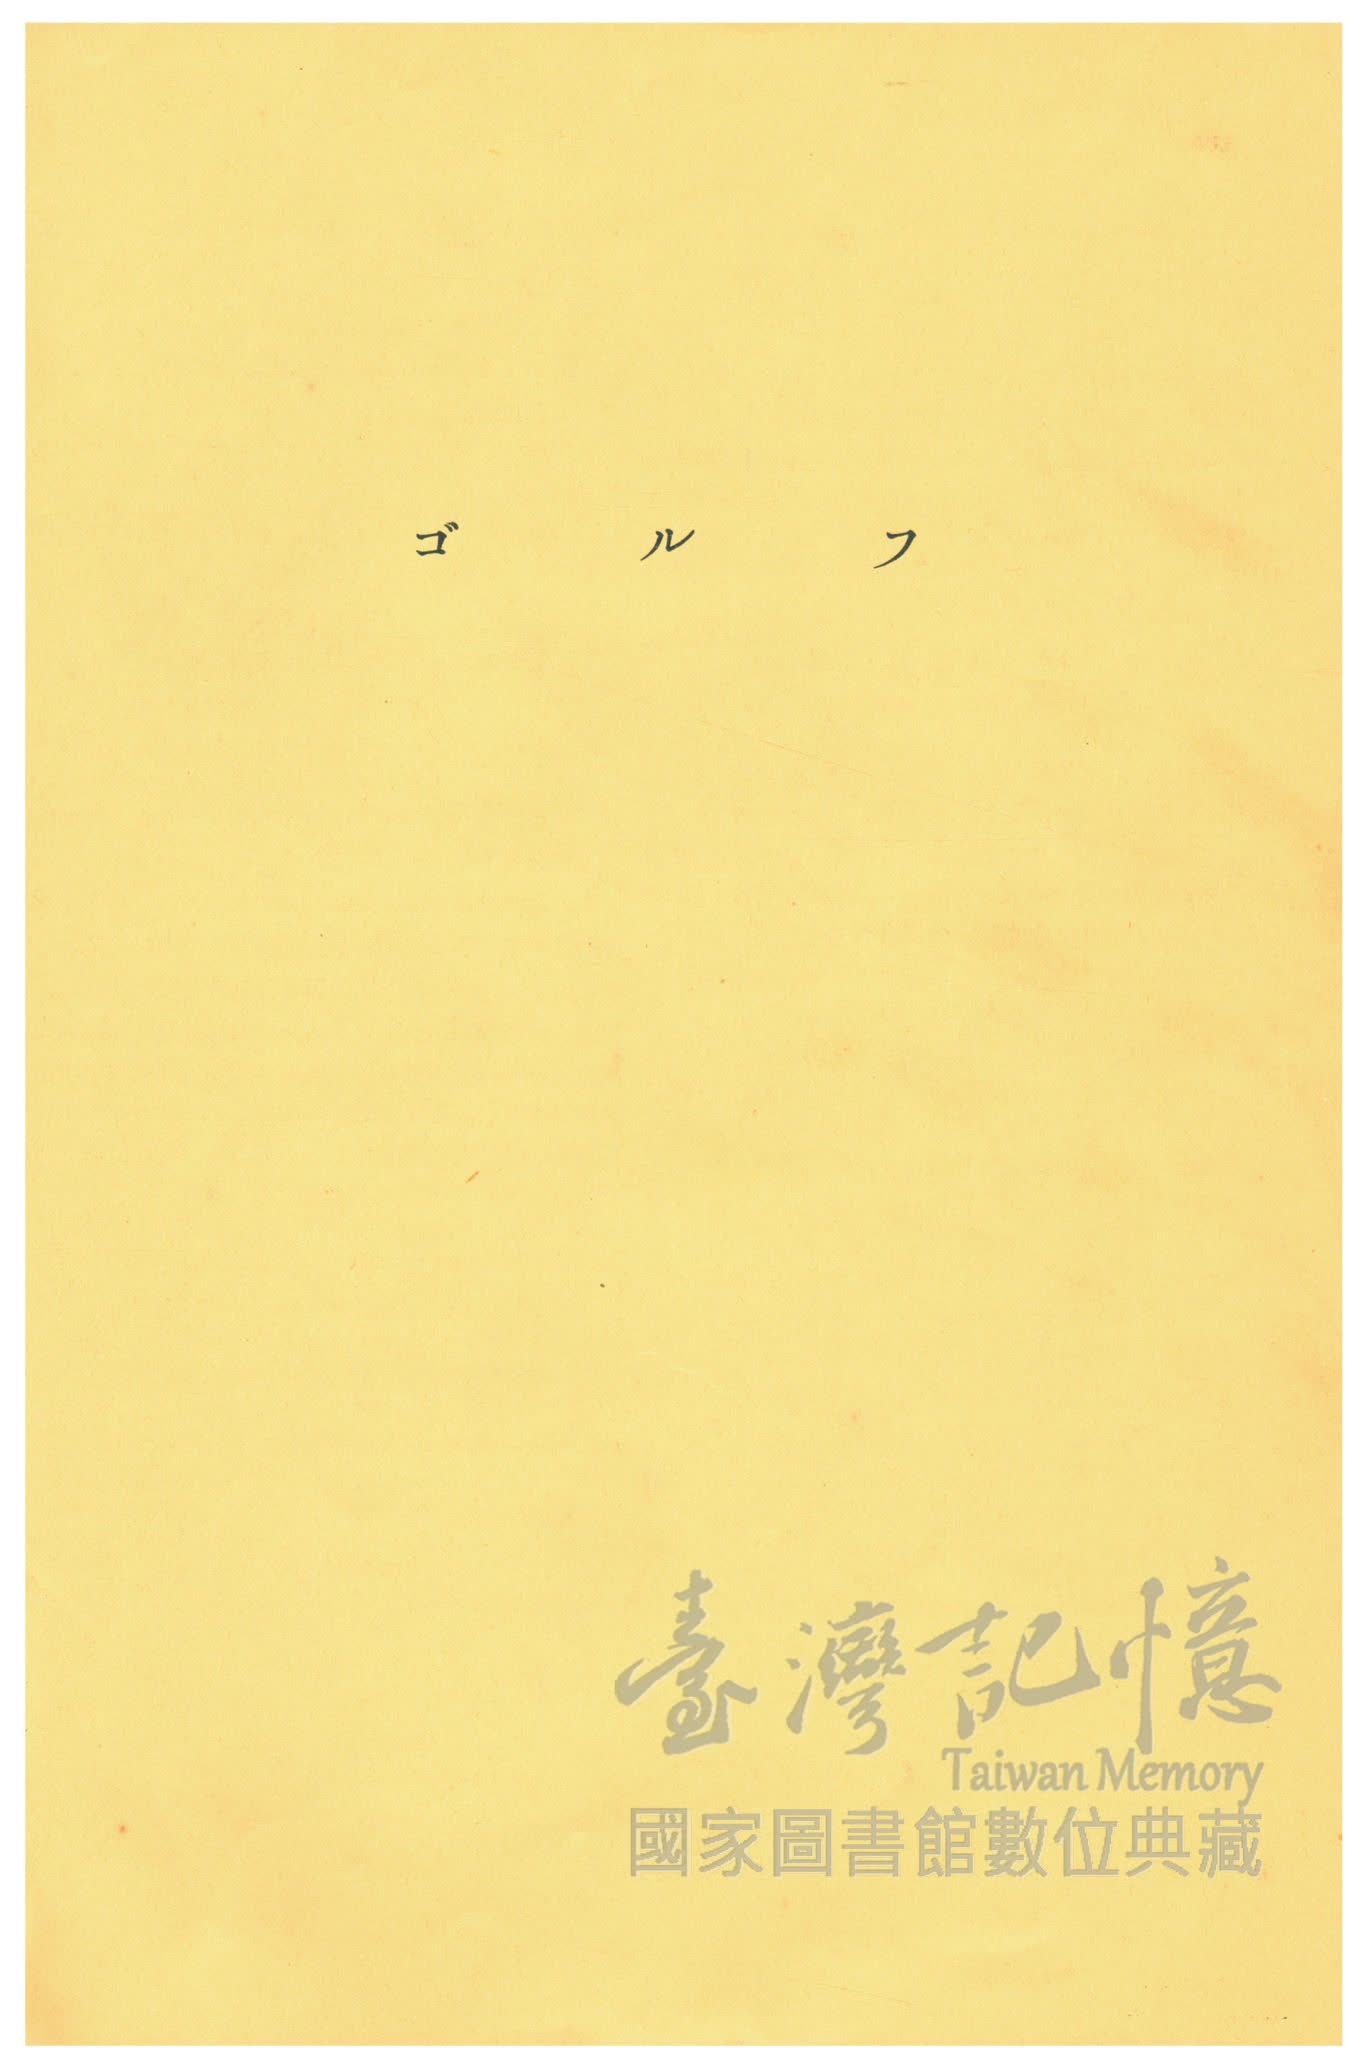 ゴルフ
臺灣記憶
Taiwan Memory
國家圖書館數位典藏